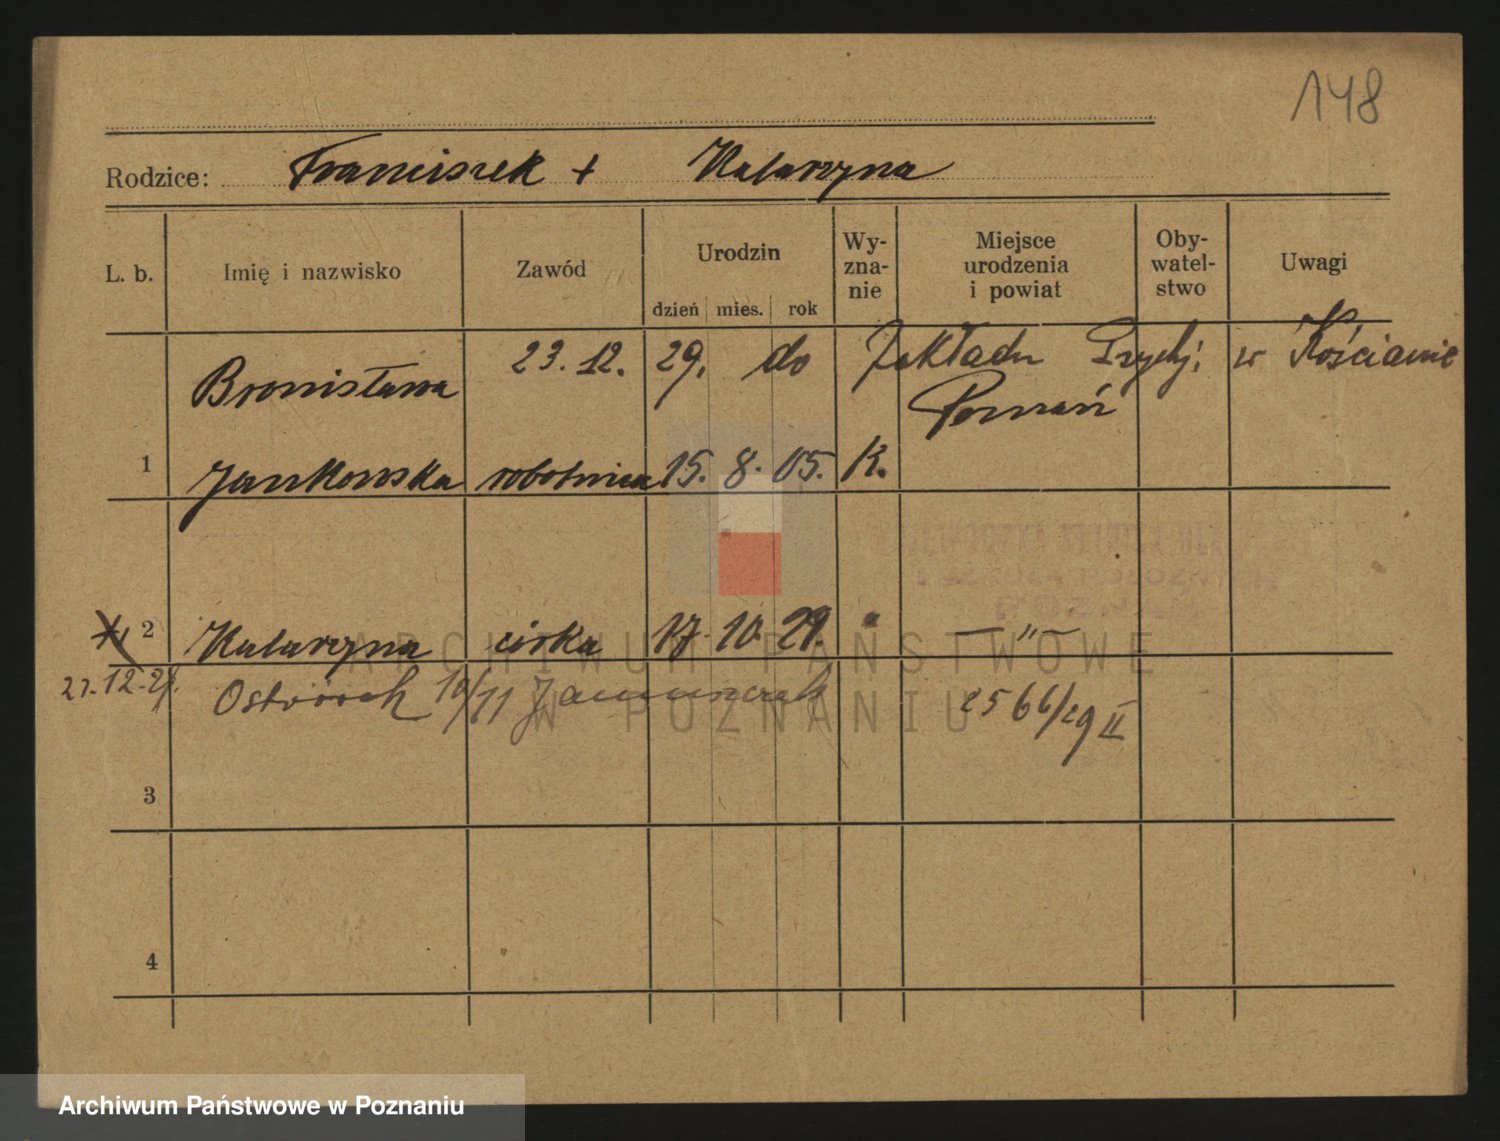 148
Rodzice: Franciszek + Katarzyna
L. b. Imię i nazwisko Zawód Urodzin dzień mies. rok Wy-zna-nie Miejsce urodzenia i powiat Oby-watel-stwo Uwagi
23.12. 29. do Zakładu Przych. w Kościanie
Bronisława Poznań
1 Jankowska robotnica 15. 8. 05. K.
2 Katarzyna córka 17. 10. 29. " — " —
27.12.29. 10/11 2566/29 II
3
4
ARCHIWUM PAŃSTWOWE
W POZNANIU
Archiwum Państwowe w Poznaniu